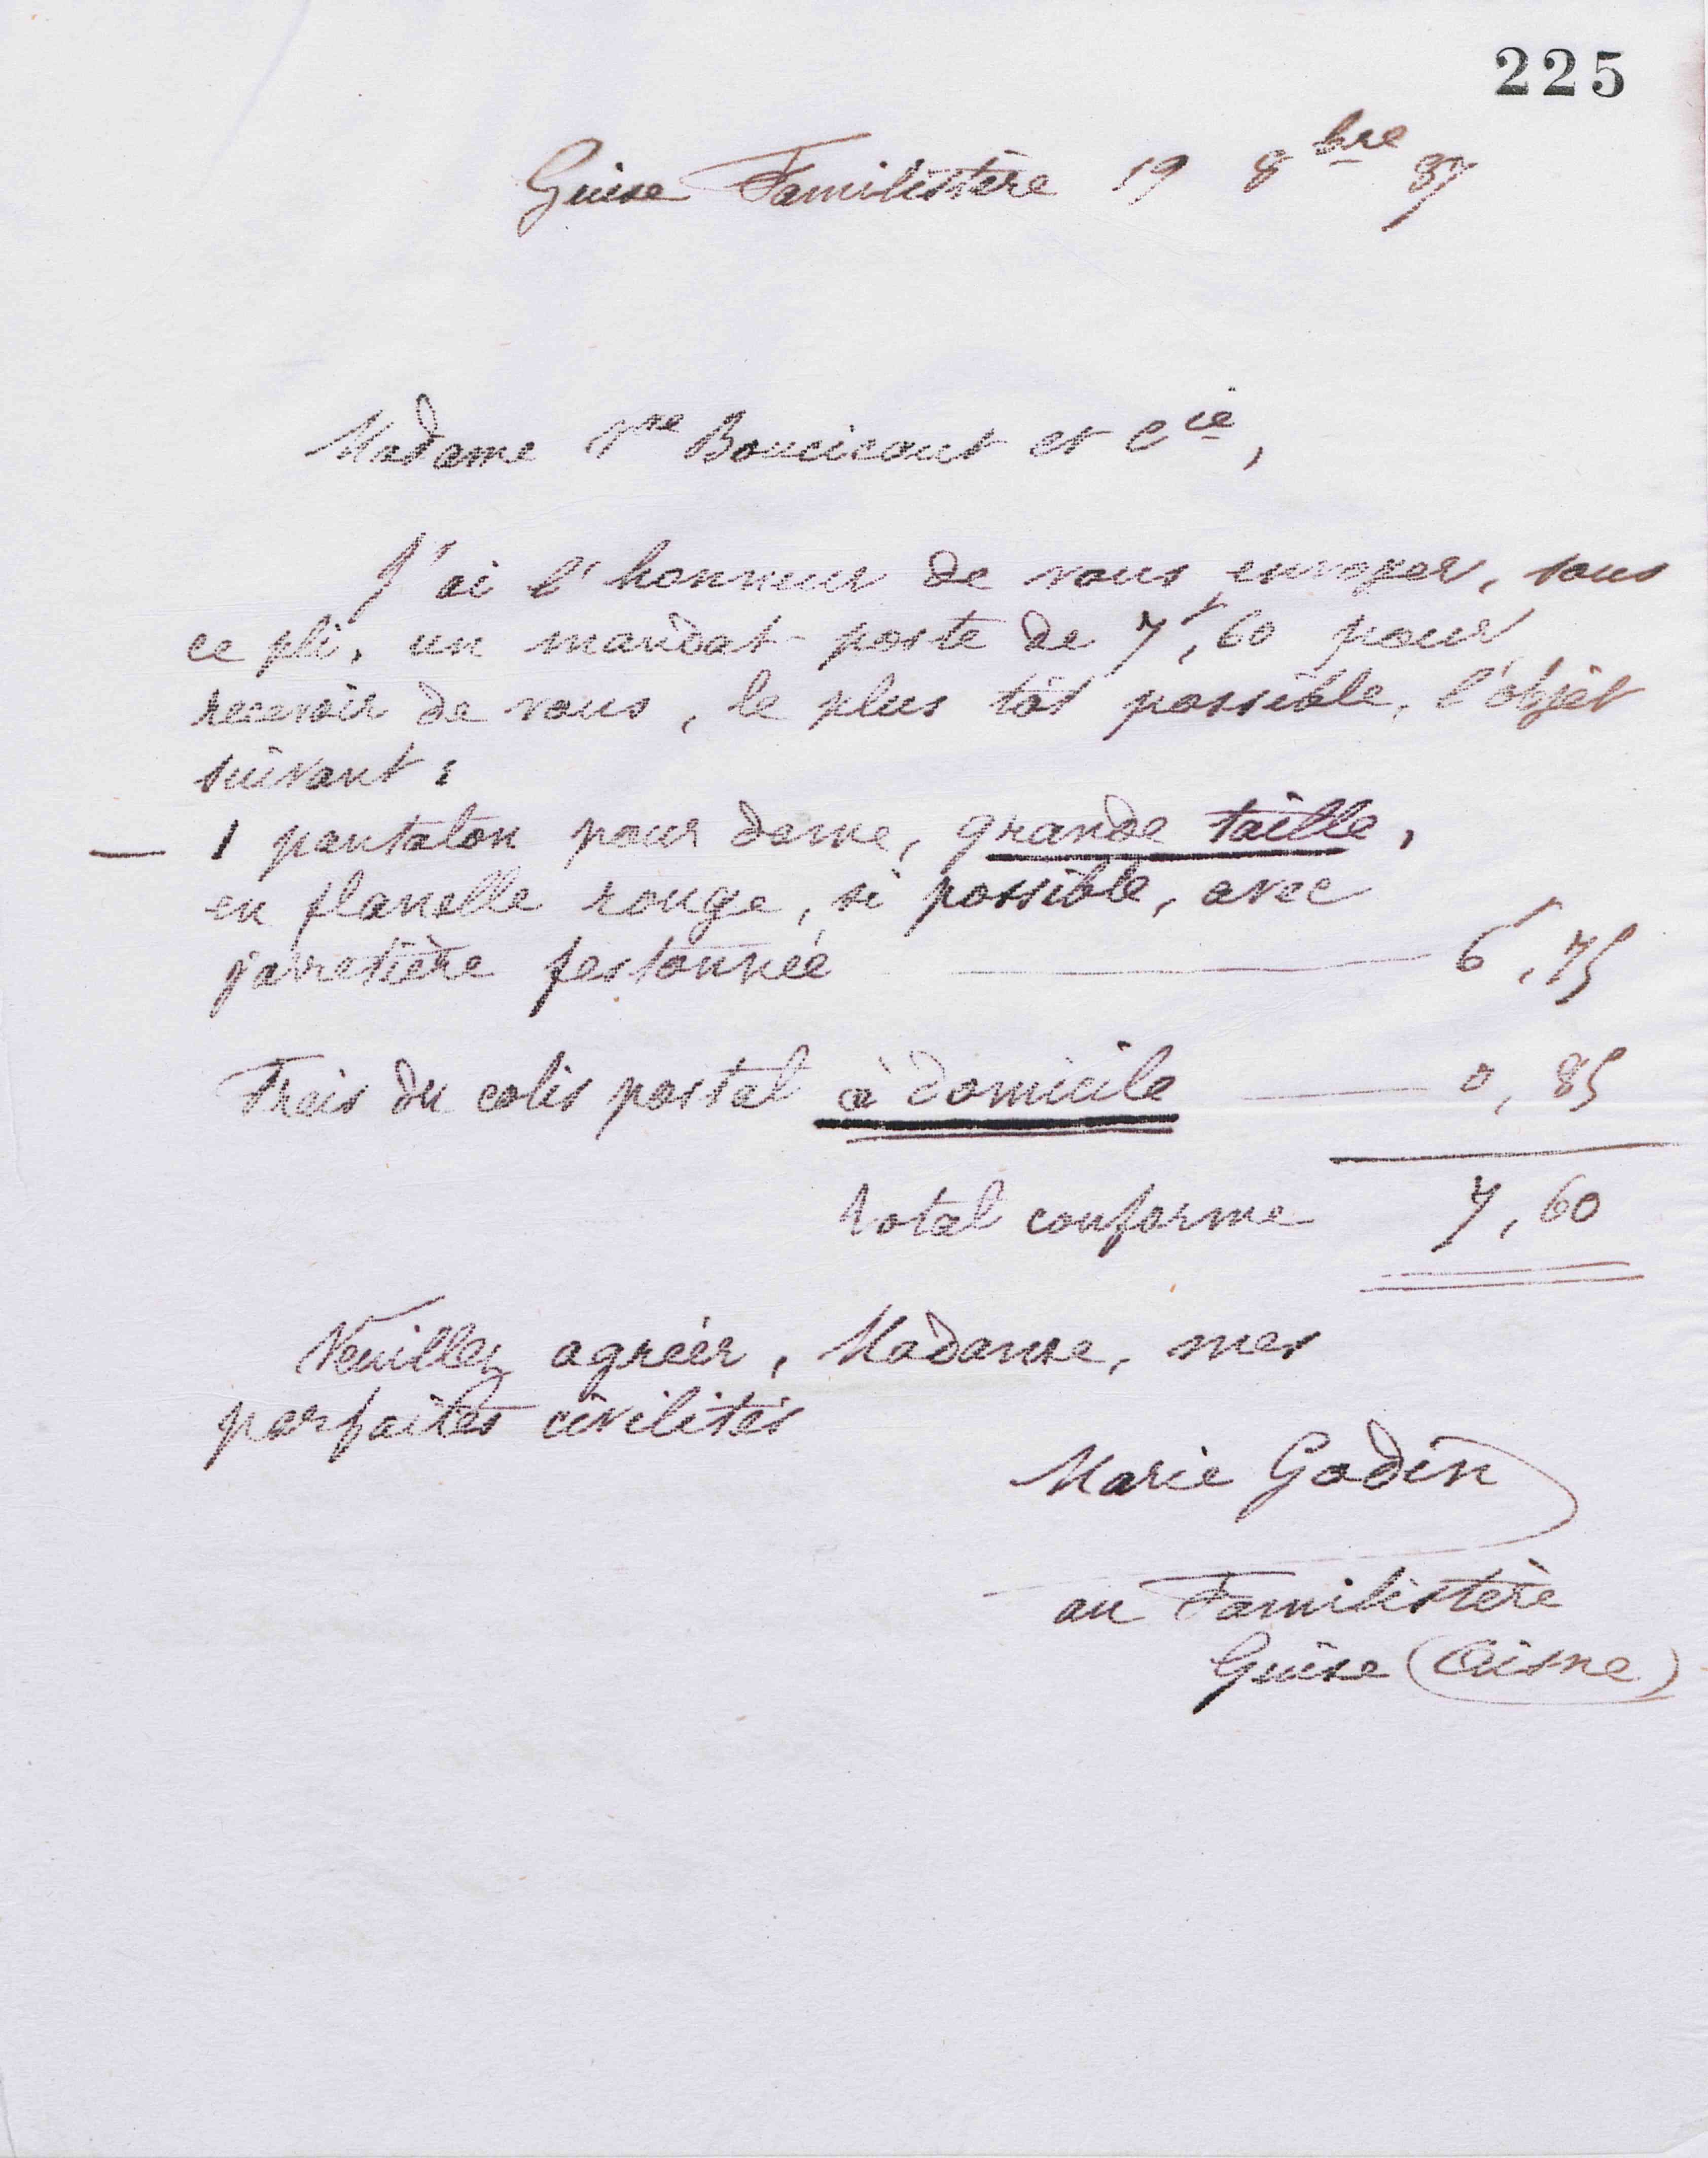 225
Guise Familistère 19 8bre 87
Madame Vve Boucicaut et Cie,
J'ai l'honneur de vous envoyer, sous
ce pli, un mandat-poste de 7f,60 pour
recevoir de vous, le plus tôt possible, l'objet
suivant :
— 1 pantalon pour dame, grande taille,
en flanelle rouge, si possible, avec
jarretière festonnée — 6f,75
Frais du colis postal à domicile — 0,85
total conforme 7,60
Veuillez agréer, Madame, mes
parfaites civilités
Marie Godin
au Familistère
Guise (Aisne)